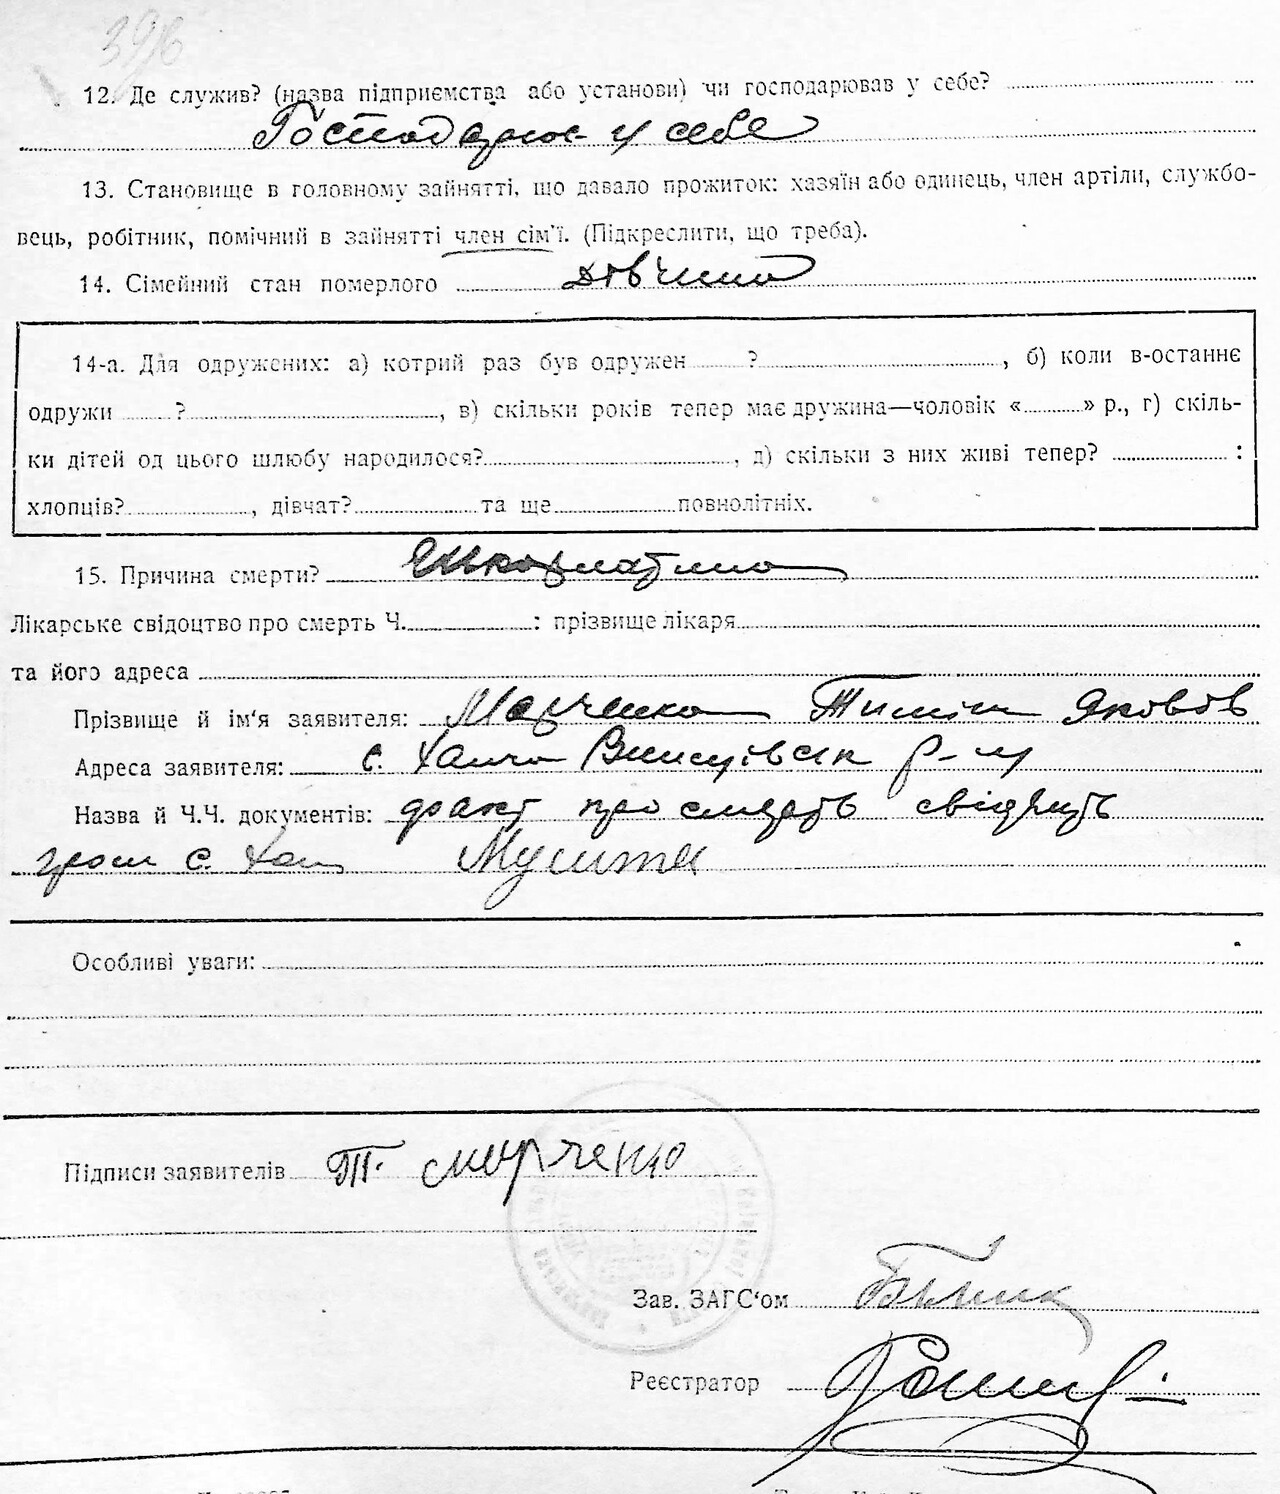 39в
12. Де служив? (назва підприємства або установи) чи господарював у себе?
Господарює у себе
13. Становище в головному зайнятті, що давало прожиток: хазяїн або одинець, член артіли, службо-
вець, робітник, помічний в зайнятті член сім'ї. (Підкреслити, що треба).
14. Сімейний стан померлого дівчина
14-а. Для одружених: а) котрий раз був одружен ? , б) коли в-останнє
одружи ? , в) скільки років тепер має дружина—чоловік « » р., г) скіль-
ки дітей од цього шлюбу народилося? , д) скільки з них живі тепер? :
хлопців? , дівчат? та ще повнолітніх.
15. Причина смерти? Шкарлатина
Лікарське свідоцтво про смерть Ч. : прізвище лікаря
та його адреса
Прізвище й ім'я заявителя: Марченко Тиміш Яковов
Адреса заявителя: с. Вписцівськ р-ну
Назва й Ч.Ч. документів: факт про смерть свідчуть
гром с. Хан
Особливі уваги:
Підписи заявителів Т. Марченко
Зав. ЗАГС'ом
Реєстратор